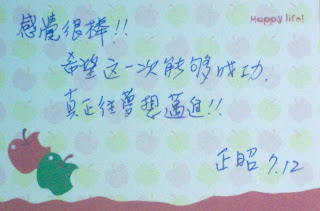 Happy life!
感覺很棒!!
希望这一次能够成功.
真正往夢想邁進!!
正昭 7.12